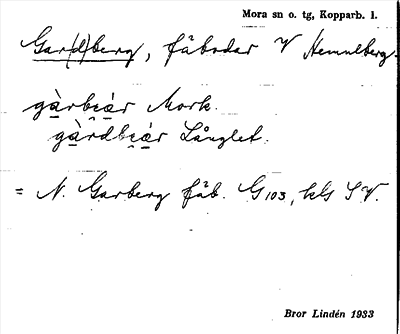 Mora sn o. tg, Kopparb. l.
Gar(d)berg, fäbodar V Hemulberg.
gàrbèr Mork.
gàrdbèr Långlet.
= N. Garberg fäb. G103, kls SV.
Bror Lindén 1933